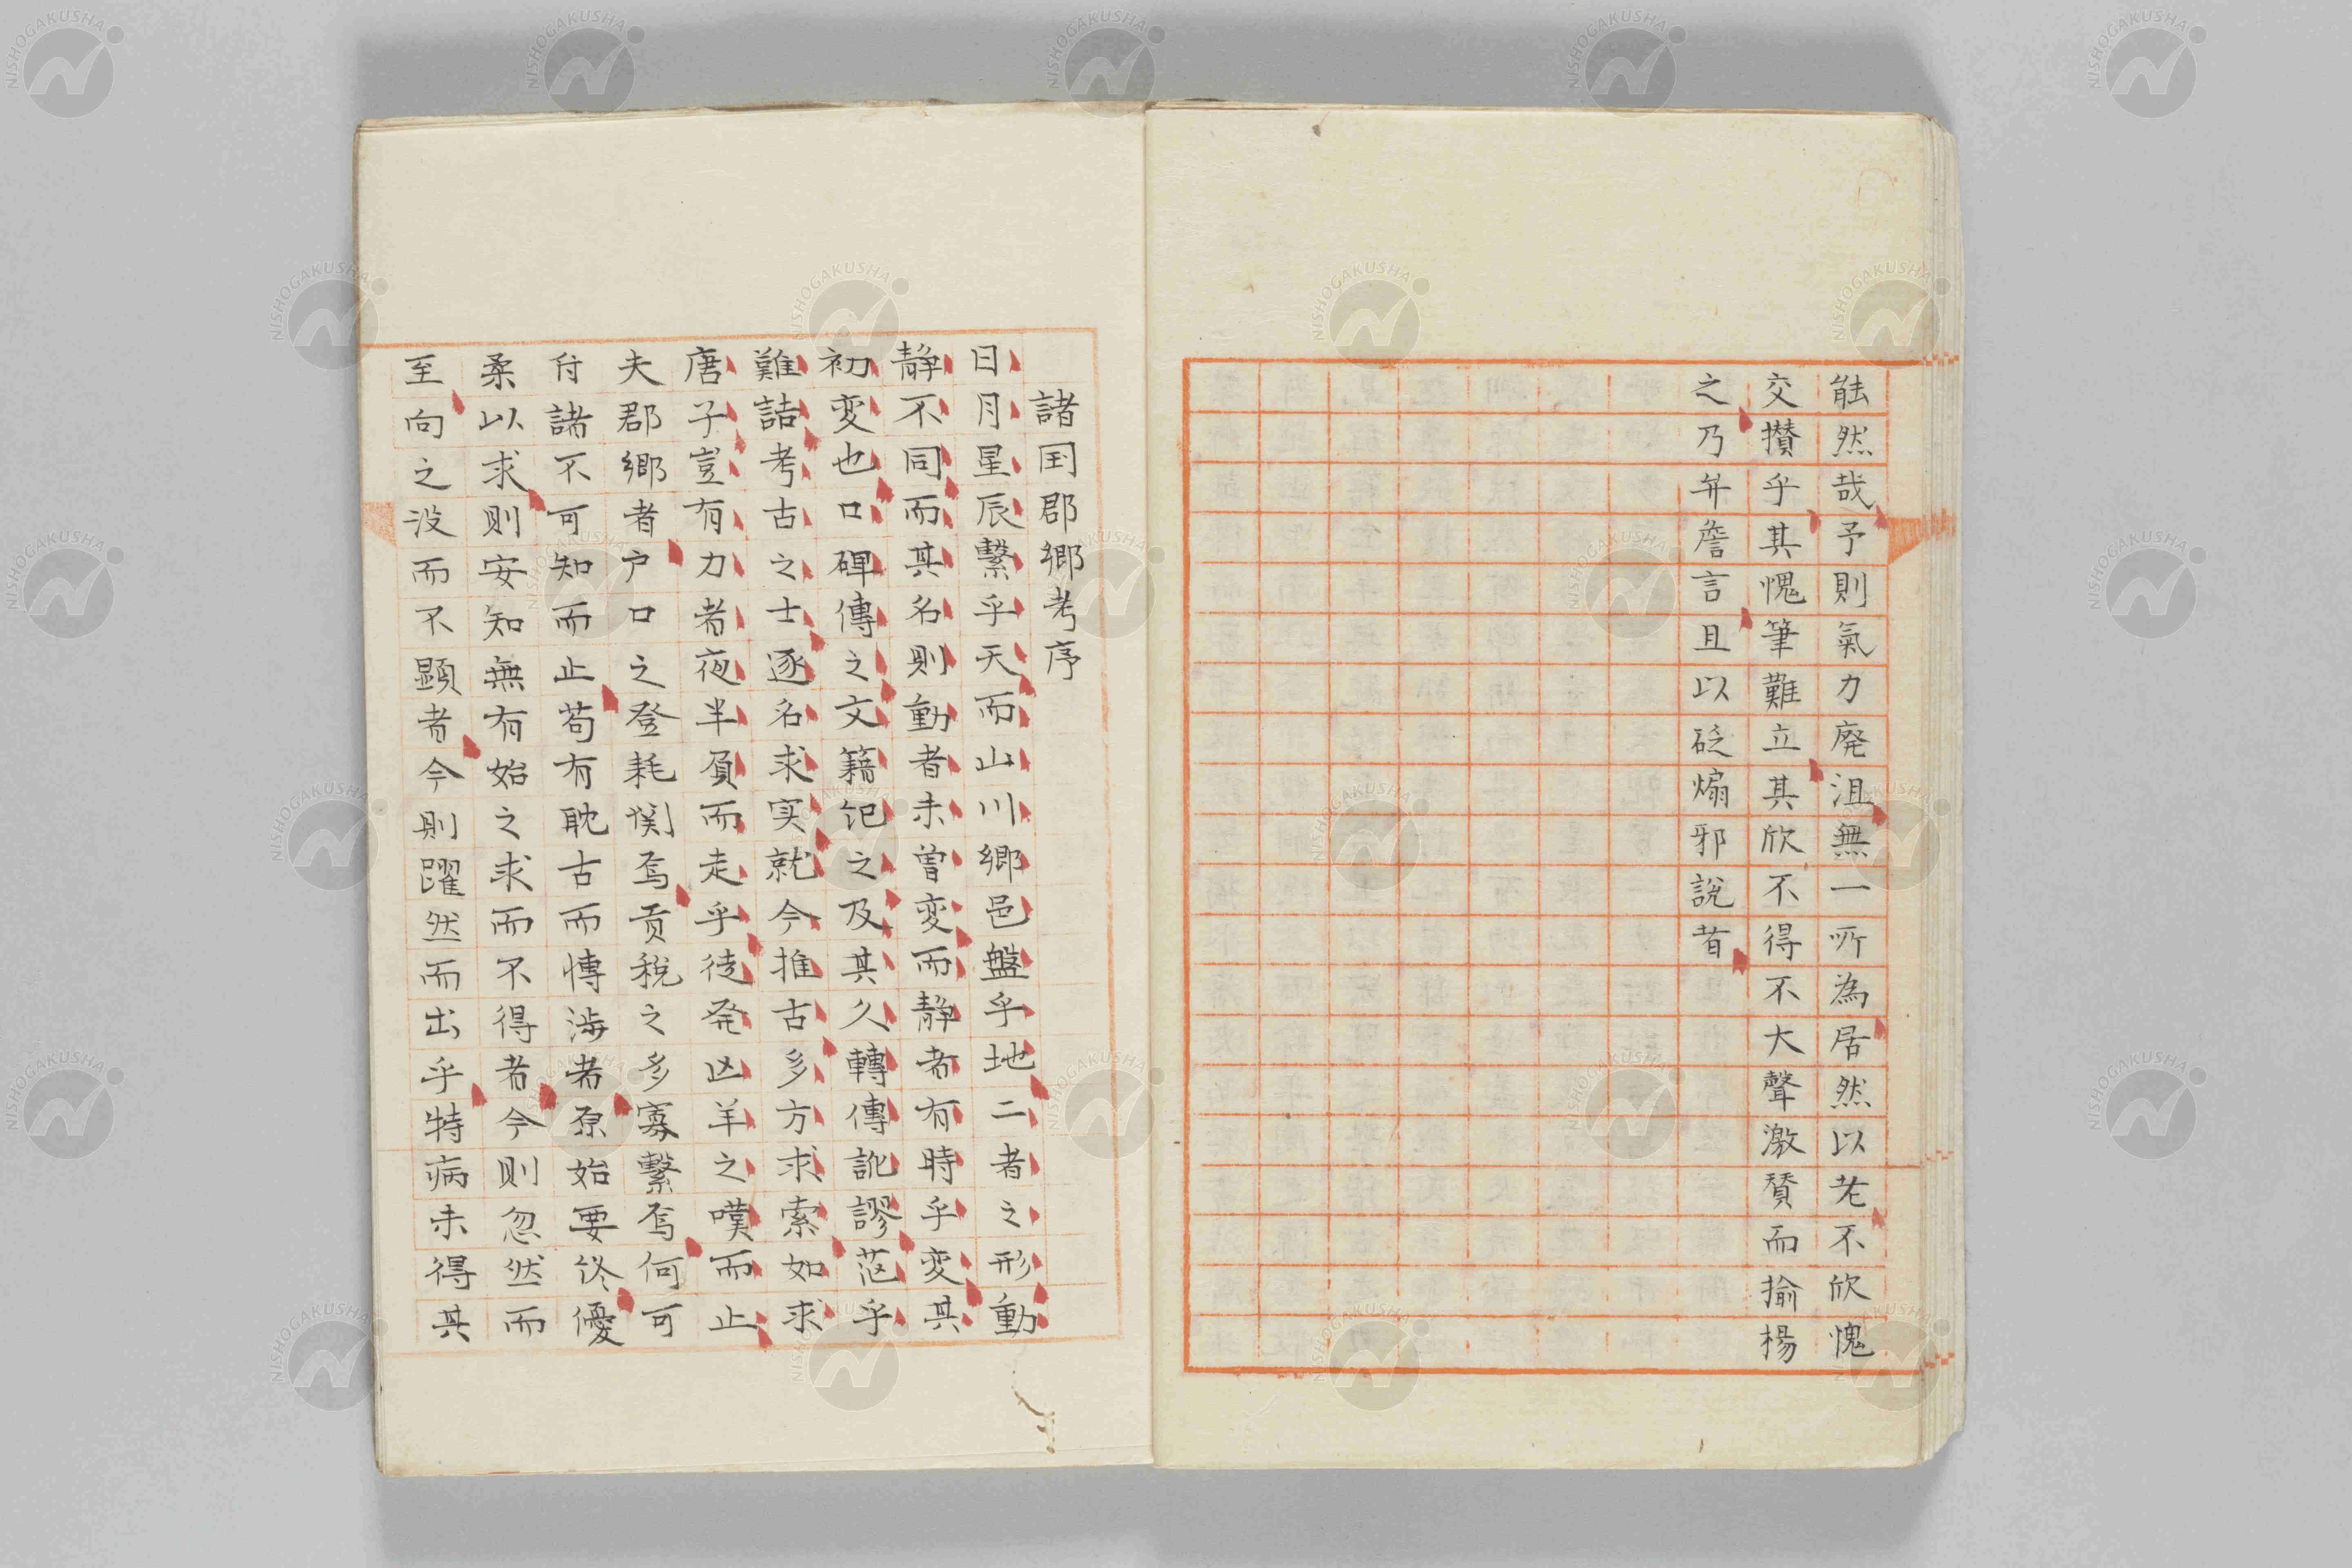 能然哉予則氣力廃沮無一所為居然以老不欣愧
交攅乎其愧筆難立其欣不得不大聲激賛而揄楊
之乃弁詹言且以砭煽邪說者
諸国郡郷考序
日月星辰繋乎天而山川郷邑盤乎地二者之形動
静不同而其名則動者未曽変而静者有時乎変其
初変也口碑傳之文籍記之及其久轉傳訛謬茫乎
難詰考古之士逐名求実就今推古多方求索如求
唐子豈有力者夜半負而走乎徒発亾羊之嘆而止
夫郡郷者户口之登耗関焉貢税之多寡繋焉何可
付諸不可知而止苟有耽古而博渉者原始要終優
柔以求則安知無有始之求而不得者今則忽然而
至向之没而不顕者今則躍然而出乎特病未得其
NISHOGAKUSHA